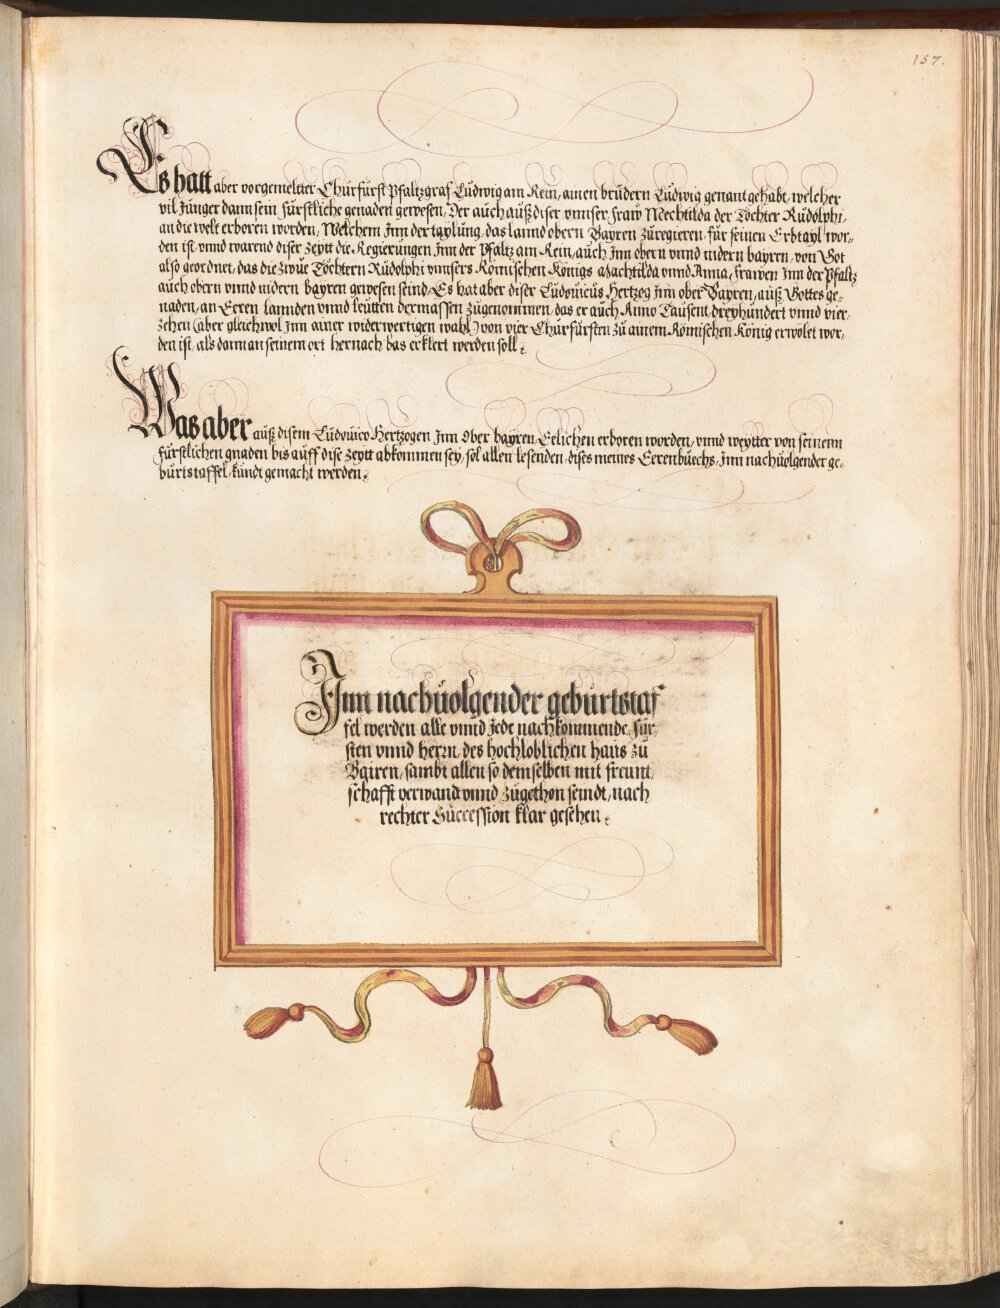 157.
Es hatt aber vorgemeltter Churfürst Pfaltzgraf Ludwig am Rein, ainen brüdern Ludwig genant gehabt, welcher
vil Jünger dann sein fürstliche genaden gewesen, Der auch auß diser vnnser fraw Mechtilda der Tochter Rüdolphi,
an die welt erboren worden, Welchem Jnn der taylung, das lannd obern Bayren züregieren für seinen Erbtayl wor¬
den ist, vnnd warend diser Zeytt die Regierungen Jnn der Pfaltz am Rein, auch Jnn obern vnnd nidern bayren, von Got
also geordnet, das die zwue Töchtern Rüdolphi vnnsers Römischen Königs Machtilda vnnd Anna, frawen Jnn der Pfaltz
auch obern vnnd nidern bayren gewesen seind, Es hat aber diser Ludouicüs Hertzog Jnn ober Bayren, auß Gottes ge¬
naden, an Eeren lannden vnnd leutten dermassen zügenommen, das er auch Anno Tausent dreyhundert vnnd vier¬
zehen (aber gleichwol Jnn ainer widerwertigen wahl) von vier Churfürsten zü ainem Römischen König erwölet wor¬
den ist, als dann an seinem ort hernach bas erklert werden soll.
Was aber auß disem Ludouico Hertzogen Jnn Ober bayren, Eelichen erboren worden, vnnd weytter von seinenn
fürstlichen gnaden bis auff dise zeytt abkommen sey, sol allen lesenden, dises meines Eerenbuechs, Jnn nachüolgender ge¬
bürtstaffel, kundt gemacht werden.
Jnn nachüolgender gebürtstaf
fel werden alle vnnd Jede nachkommende, für¬
sten vnnd herrn, des hochloblichen haus zü
Bairen, sambt allen so demselben mit freunt,
schafft verwandt vnnd zügethon seindt, nach
rechter Süccession klar gesehen.